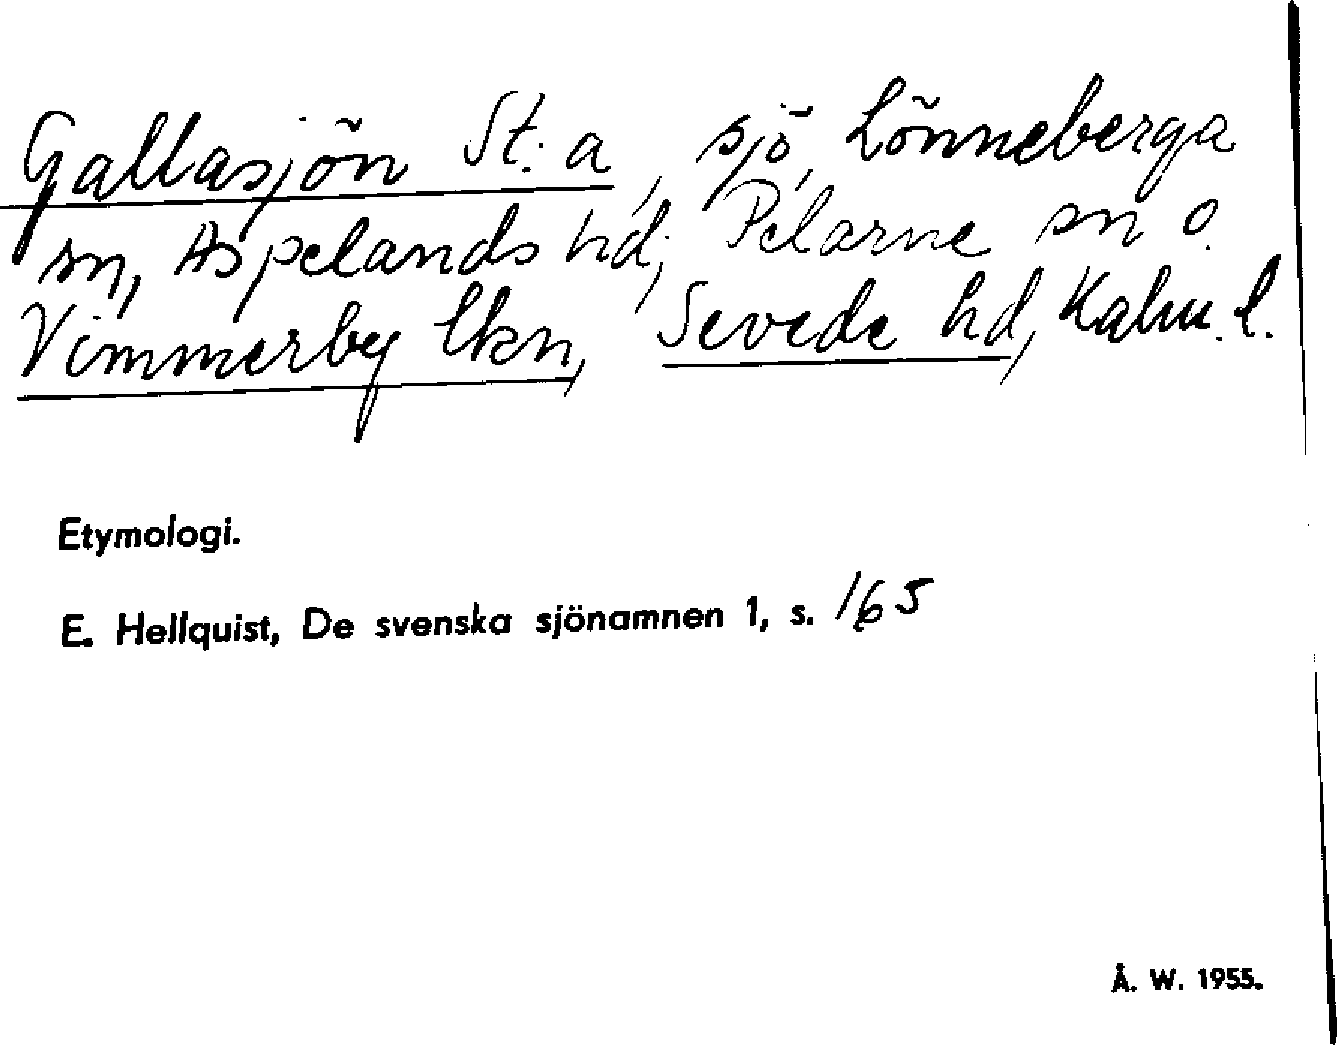 Gallasjön St. a, sjö, Lönneberga
sn, Aspelands hd; Pelarne sn o.
Vimmerby lkn, Sevede hd, Kalm. l.
Etymologi.
E. Hellquist, De svenska sjönamnen 1, s. 165
Å. W. 1955.